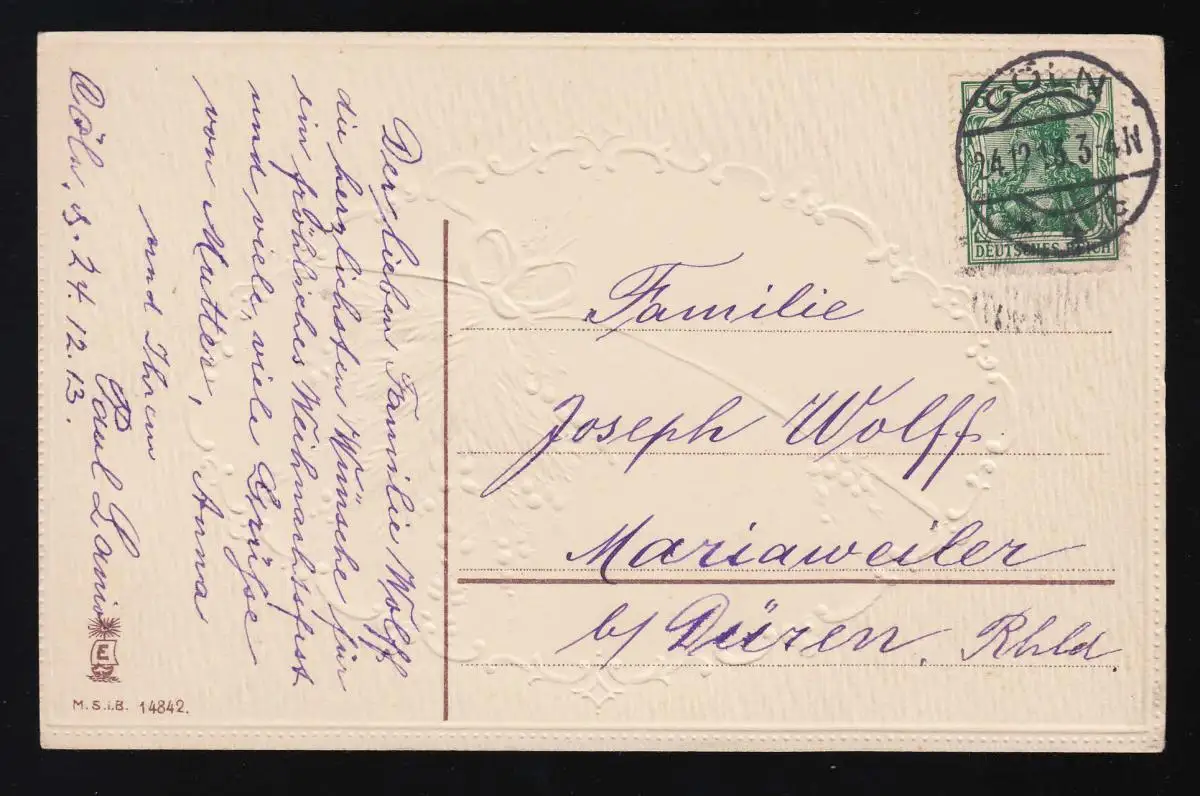 Der lieben Familie Wolff
die herzlichsten Wünsche für
ein fröhliches Weihnachtsfest
und viele, viele Grüße
von Mutter, Anna
und Ihrem
Paul
Cöln, d. 24.12.13.
M.S.i.B. 14842.
CÖLN
24.12.13. 3-4N
DEUTSCHES REICH
Familie
Joseph Wolff
Mariaweiler
b/ Düren, Rhld.